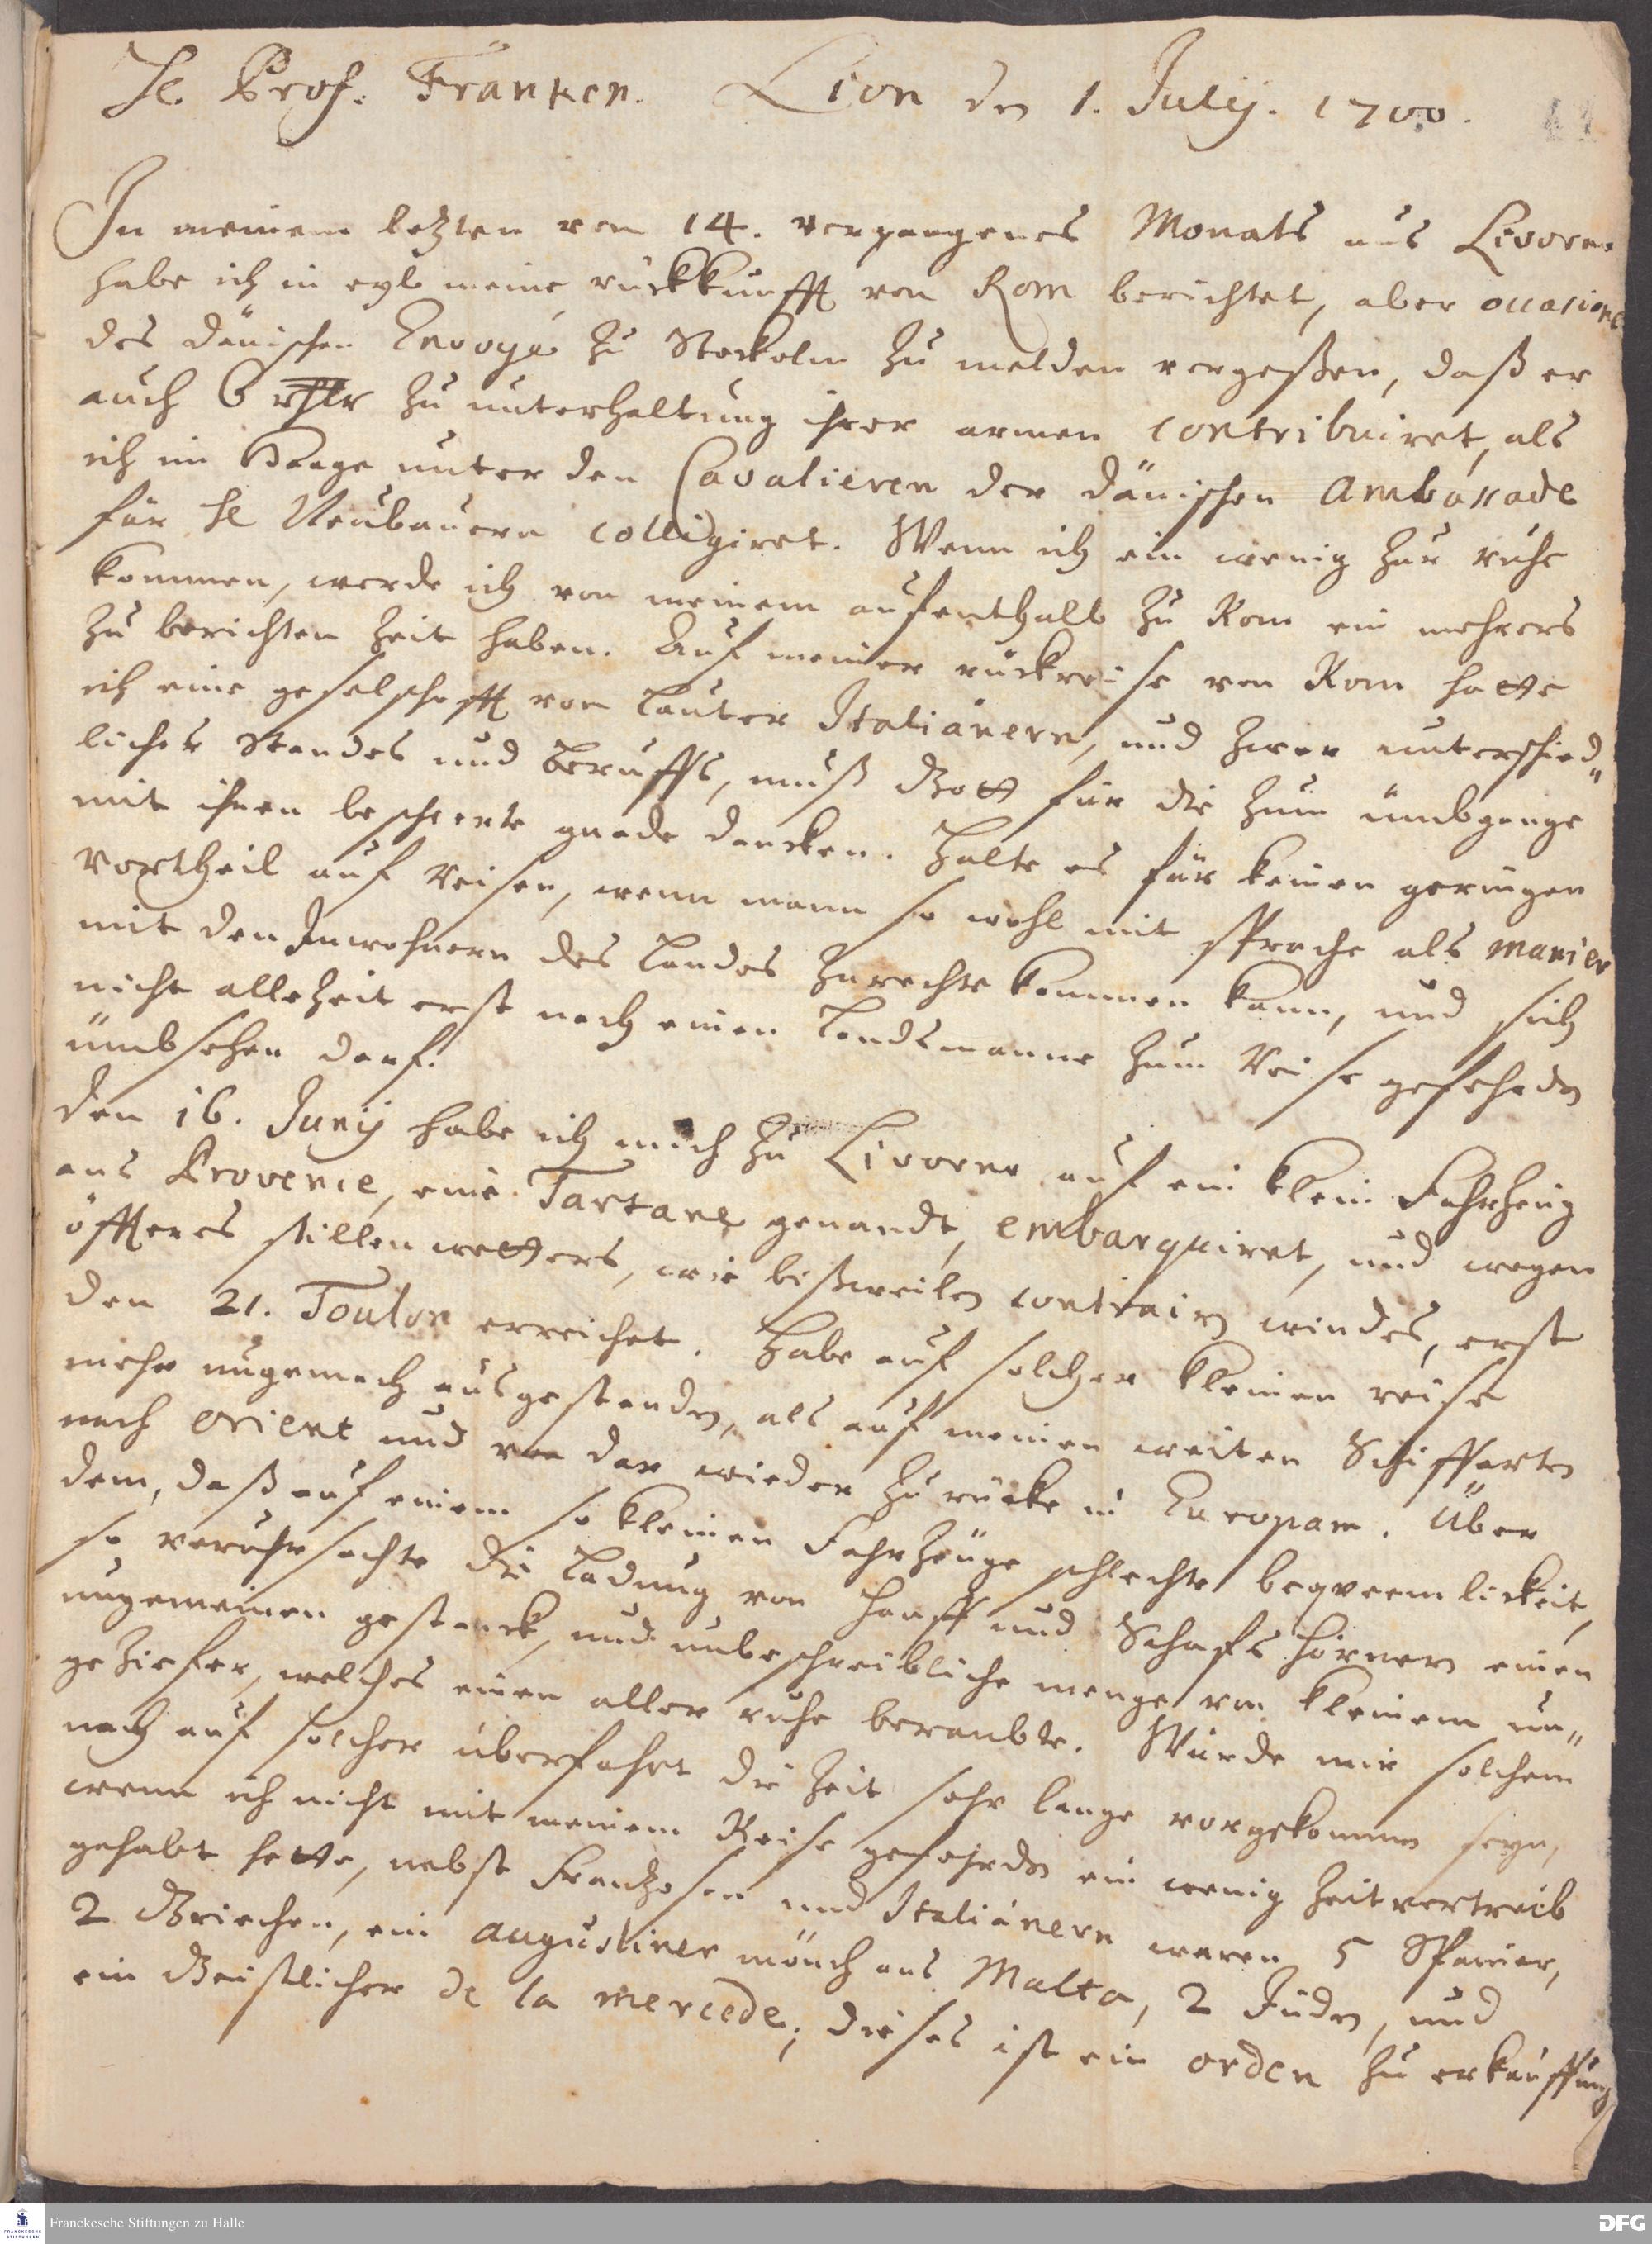 H. Prof. Francken. Lion den 1. Julij. 1700.
In meinem letzten vom 14. vergangenes Monats aus Livorno
habe ich in eyl meine rückkunfft von Rom berichtet, aber occasione
des dänischen Envoyé zu Stockolm zu melden vergeßen, daß er
auch 6 rthlr zu unterhaltung ihrer armen contribuiret, als
ich im Haage unter den Cavalieren der dänischen Ambassade
für H. Neubauern colligiret. Wenn ich ein wenig zur ruhe
kommen, werde ich von meinem aufenthalt zu Rom ein mehrers
zu berichten zeit haben. Auf meiner rückreise von Rom hatte
ich eine geselschafft von lauter Italiänern, und zwar unterschied„
liches Standes und beruffs, muß Gott für die zum ümbgange
mit ihnen bescherte gnade dancken. Halte es für keinen geringen
vortheil auf Reisen, wenn mann so wohl mit sprache als manier
mit den Inwohnern des Landes zurechte kommen kann, und sich
nicht allezeit erst nach einen Landsmanne zum Reise gefehrden
ümbsehen darf.
Den 16. Junij habe ich mich zu Livorno auf ein klein Fahrzeug
aus Provence, eine Tartane genandt, embarquiret, und wegen
öfferes stillen wetters, wie bißweilen contrairen windes, erst
den 21. Toulon erreichet. Habe auf solcher kleinen reise
mehr ungemach ausgestanden, als auf meinen weiten Schiffarten
nach Orient und von dar wieder zu rücke in Europam. Über
dem, daß auf einem so kleinen Fahrzeüge schlechte beqveemlickeit,
so veruhrsachte die Ladung von Hanff und Schafs hörnern einen
ungemeinen gestanck, und unbeschreibliche menge von kleinem un„
geziefer, welches einen aller ruhe beraubte. Würde mir solchem
nach auf solcher überfahrt die zeit sehr lange vorgekommen seyn,
wenn ich nicht mit meinem Reise gefehrden ein wenig zeitvertreib
gehabt hette, nebst Frantzosen und Italiänern waren 5 Spanier,
2 Griechen, ein Augustiner mönch aus Malta, 2 Juden, und
ein Geistlicher de la mercede; dieses ist ein orden zu erkauffung
Franckesche Stiftungen zu Halle
DFG